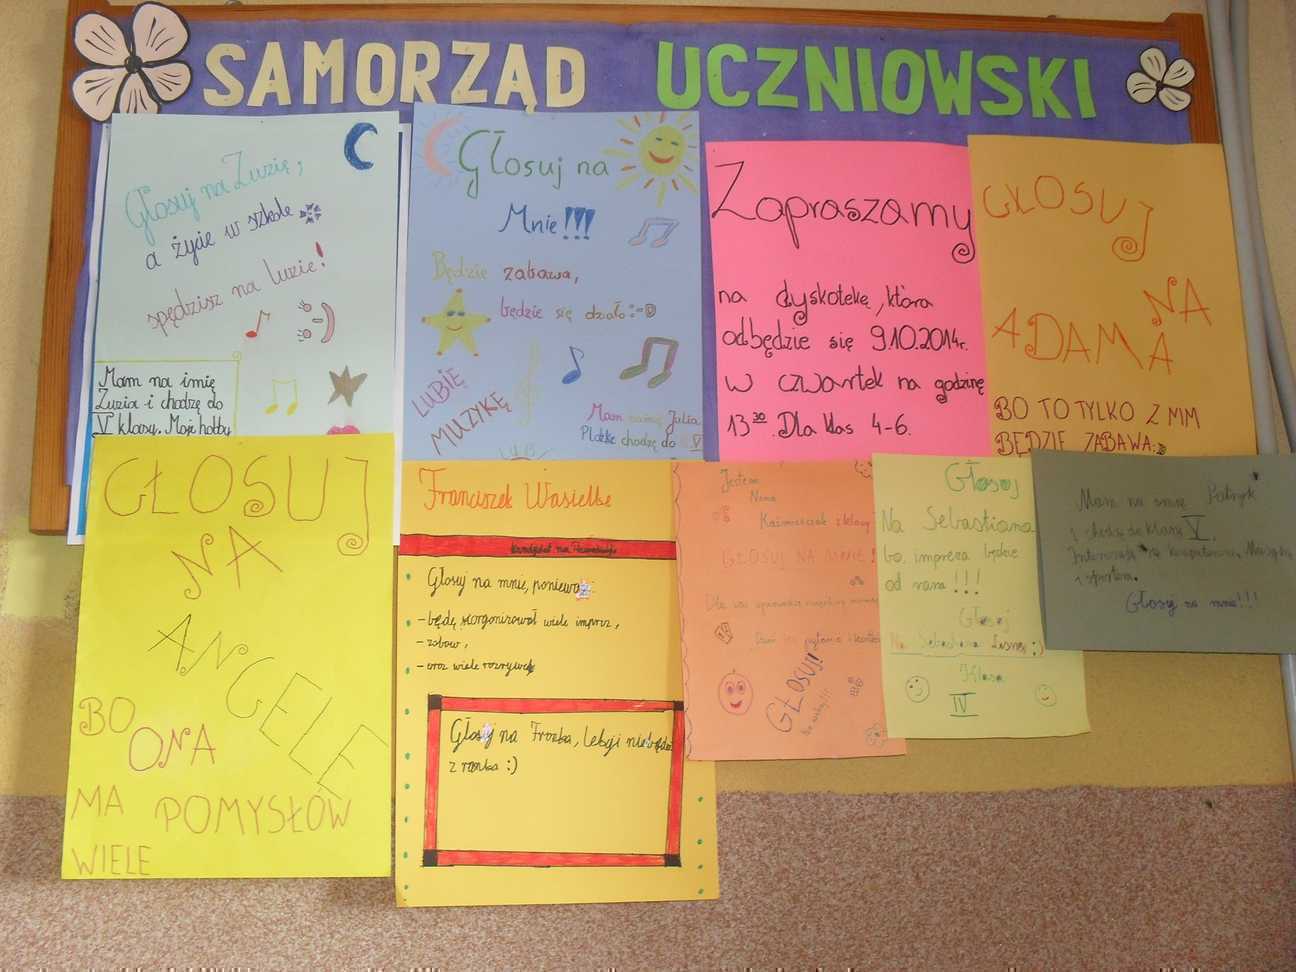 SAMORZĄD UCZNIOWSKI
Głosuj na Zuzię,
a życie w szkole
spędzisz na luzie!
Mam na imię
Zuzia i chodzę do
V klasy. Moje hobby
Głosuj na
Mnie!!!
Będzie zabawa,
będzie się działo :-D
LUBIĘ
MUZYKĘ
Mam na imię Julia
chodzę do V
Zapraszamy
na dyskotekę, która
odbędzie się 9.10.2014r.
w czwartek na godzinę
13³⁰. Dla klas 4-6.
GŁOSUJ
NA
ADAMA
BO TO TYLKO Z NIM
BĘDZIE ZABAWA:D
GŁOSUJ
NA
ANGELE
BO
ONA
MA POMYSŁÓW
WIELE
Franciszek Wasielke
Kandydat na
Głosuj na mnie, ponieważ:
- będę zorganizował wiele imprez,
- zabaw,
- oraz wiele rozrywek
Głosuj na Franka, lekcji nie będzie
z ranka :)
Jestem
Kaźmierczak z klasy
GŁOSUJ NA MNIE!
Dla was
GŁOSUJ!!
Głosuj
Na Sebastiana
bo impreza będzie
od rana!!!
Głosuj
Na Sebastiana :)
Klasa
IV
Mam na imię Patryk
i chodzę do klasy V.
Interesuję się komputerami,
i sportem.
Głosuj na mnie!!!